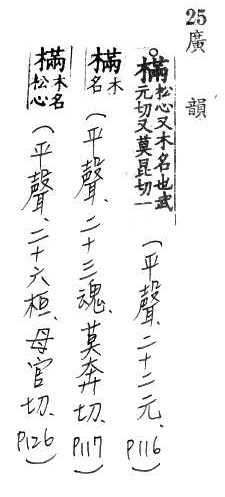 25 廣韻
。樠松心又木名也武元切又莫昆切一(平聲、二十二元、P116)
樠木名(平聲、二十三魂、莫奔切、P117)
樠木名松心(平聲、二十六桓、母官切、P126)